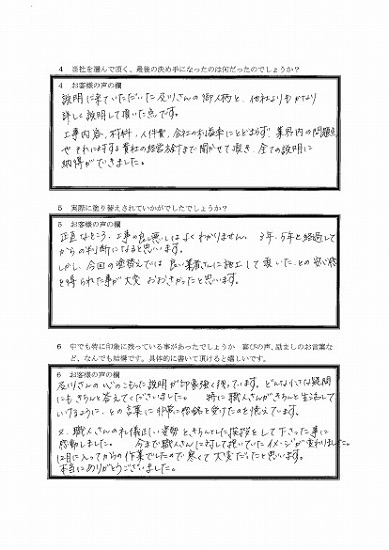 4 当社を選んで頂く、最後の決め手になったのは何だったのでしょうか？
4 お客様の声の欄
説明に来ていただいた及川さんの御人柄と、他社よりもかなり
詳しく説明して頂いた点です。
工事内容、材料、人件費、会社の利益率にとどまらず 業界内の問題点
や それに対する貴社の経営方針まで聞かせて頂き、全ての説明に
納得ができました。
5 実際に塗り替えされていかがでしたでしょうか？
5 お客様の声の欄
正直なところ、工事の良し悪しはよくわかりません。 3年、5年と経過して
からの判断になると思います。
しかし、今回の塗替えでは 良い業者さんに施工して頂いた、との安心感
を得られた事が大変 おおきかったと思います。
6 中でも特に印象に残っている事があったでしょうか 喜びの声、励ましのお言葉な
ど、なんでも結構です。具体的に書いて頂けると嬉しいです。
6 お客様の声の欄
及川さんの心のこもった説明が印象強く残っています。どんな小さな疑問
にもきちんと答えてくださいました。 特に職人さんがきちんと生活して
いけるように、との言葉に非常に感銘を受けたのを憶えています。
又、職人さんの礼儀正しい姿勢 ときちんとした挨拶をして下さった事に
感動しました。 今まで職人さんに対して抱いていたイメージが変わりました。
12月に入ってからの作業でしたので寒くて大変だったと思います。
本当にありがとうございました。